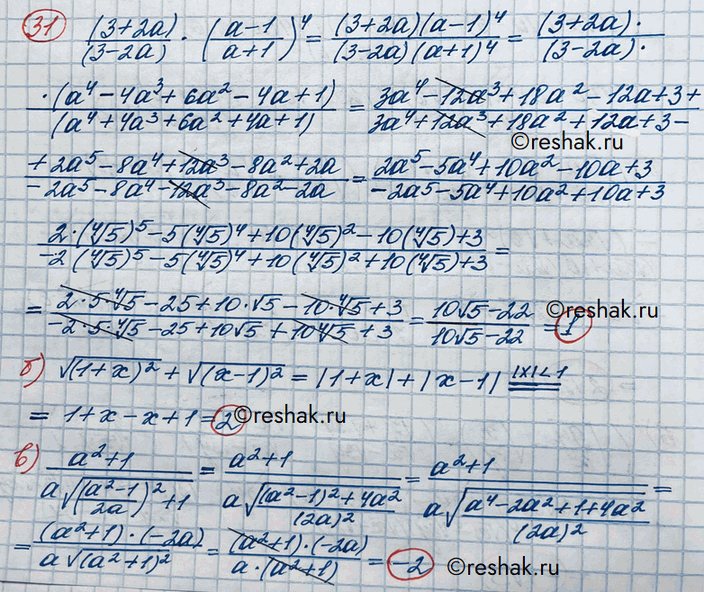 31 (3+2a)/(3-2a) · ((a-1)/(a+1))^4 = ((3+2a)(a-1)^4)/((3-2a)(a+1)^4) = ((3+2a)·)/((3-2a)·)
(·(a^4-4a^3+6a^2-4a+1))/((a^4+4a^3+6a^2+4a+1)) = (3a^4-12a^3+18a^2-12a+3+)/(3a^4+12a^3+18a^2+12a+3-)
©reshak.ru
(+2a^5-8a^4+12a^3-8a^2+2a)/(-2a^5-8a^4-12a^3-8a^2-2a) = (2a^5-5a^4+10a^2-10a+3)/(-2a^5-5a^4+10a^2+10a+3)
(2·(∜5)^5-5(∜5)^4+10(∜5)^2-10(∜5)+3)/(-2(∜5)^5-5(∜5)^4+10(∜5)^2+10(∜5)+3) =
= (2·5·∜5-25+10·√5-10·∜5+3)/(-2·5·∜5-25+10√5+10∜5+3) = (10√5-22)/(10√5-22) = 1
©reshak.ru
б) √((1+x)^2) + √((x-1)^2) = |1+x| + |x-1| |x|<1 =
= 1+x-x+1 = 2
©reshak.ru
в) (a^2+1)/(a√(((a^2-1)/(2a))^2+1)) = (a^2+1)/(a√(((a^2-1)^2+4a^2)/((2a)^2))) = (a^2+1)/(a√((a^4-2a^2+1+4a^2)/((2a)^2))) =
= ((a^2+1)·(-2a))/(a√((a^2+1)^2)) = ((a^2+1)·(-2a))/(a·(a^2+1)) = -2
©reshak.ru